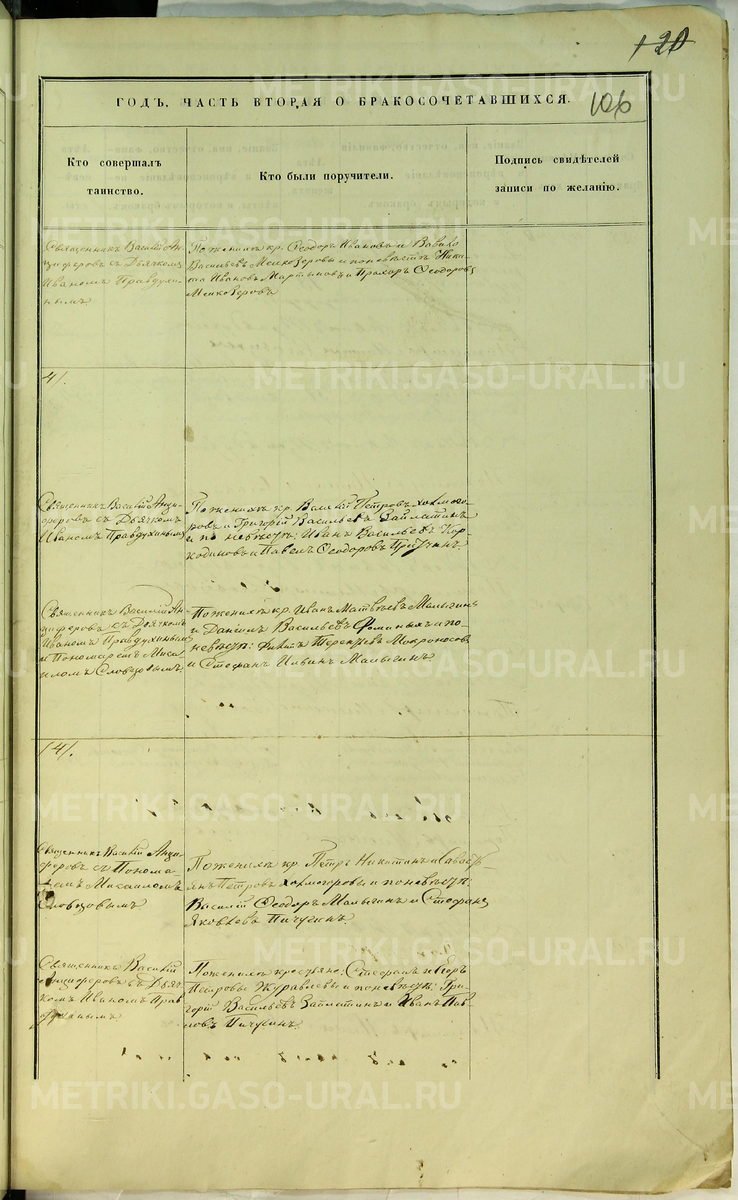 120
106
ГОДЪ, ЧАСТЬ ВТОРАЯ О БРАКОСОЧЕТАВШИХСЯ.
Кто совершалъ
таинство.
Кто были поручители.
Подпись свидѣтелей
записи по желанію.
Священникъ Василій Ан-
циферовъ съ Дьячкомъ
Иваномъ Правдухи-
нымъ.
По женихѣ кр. Ѳеодоръ Ивановъ и
Васильевъ Мелкозеровы и по невѣстѣ Ники-
та Ивановъ Мартыновъ и Прохоръ Ѳеодоровъ
Мелкозеровъ
4/.
Священникъ Василій Анци-
феровъ съ Дьячкомъ
Иваномъ Правдухинымъ
По женихѣ кр. Василій Петровъ Холмого-
ровъ и Григорій Васильевъ Заплатинъ
и по невѣстѣ: Иванъ Васильевъ Кор-
кодиновъ и Павелъ Ѳеодоровъ Пичугинъ.
Священникъ Василій Ан-
циферовъ съ Дьячкомъ
Иваномъ Правдухинымъ
и Пономаремъ Миха-
иломъ Словцовымъ.
По женихѣ кр. Иванъ Матвѣевъ Малыгинъ
и Даніилъ Васильевъ Фоминыхъ и по
невѣстѣ: Терентьевъ Мокроносовъ
и Стефанъ Ильинъ Малыгинъ.
14/.
Священникъ Василій Анци-
феровъ съ Понома-
ремъ Михаиломъ
Словцовымъ
По женихѣ кр. Петръ Никитинъ и
Петровъ Холмогоровы и по невѣстѣ:
Василій Ѳеодоръ Малыгинъ и Стефанъ
Яковлевъ Пичугинъ.
Священникъ Василій
Анциферовъ съ Дьяч-
комъ Иваномъ Прав-
духинымъ
По женихѣ крестьяне: Стефанъ и Егоръ
Петровы Журавлевы и по невѣстѣ: Гри-
горій Васильевъ Заплатинъ и Иванъ Пав-
ловъ Пичугинъ.
METRIKI.GASO-URAL.RU